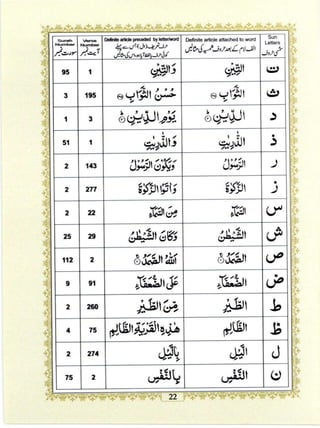 Surah Number Verse Number Definite article preceded by letter/word Definite article attached to word Sun Letters
سورت نمبر آیت نمبر
95 1 وَالتِّيْنِ التِّيْنِ ت
3 195 حُسْنُ الثَّوَابِ الثَّوَابِ ث
1 3 يَوْمِ الدِّيْنِ الدِّيْنِ د
51 1 وَالذّٰرِيٰتِ الذّٰرِيٰتِ ذ
2 143 وَيَكُوْنَ الرَّسُوْلُ الرَّسُوْلُ ر
2 277 وَاٰتَوُا الزَّكٰوةَ الزَّكٰوةَ ز
2 22 مِنَ السَّمَآءِ السَّمَآءِ س
25 29 وَكَانَ الشَّيْطٰنُ الشَّيْطٰنُ ش
112 2 اَللّٰهُ الصَّمَدُ الصَّمَدُ ص
9 91 عَلَى الضُّعَفَآءِ الضُّعَفَآءِ ض
2 260 مِّنَ الطَّيْرِ الطَّيْرِ ط
4 75 هٰذِهِ الْقَرْيَةِ الظَّالِمِ الظَّالِمِ ظ
2 274 بِالَّيْلِ الَّيْلِ ل
75 2 بِالنَّفْسِ النَّفْسِ ن
22